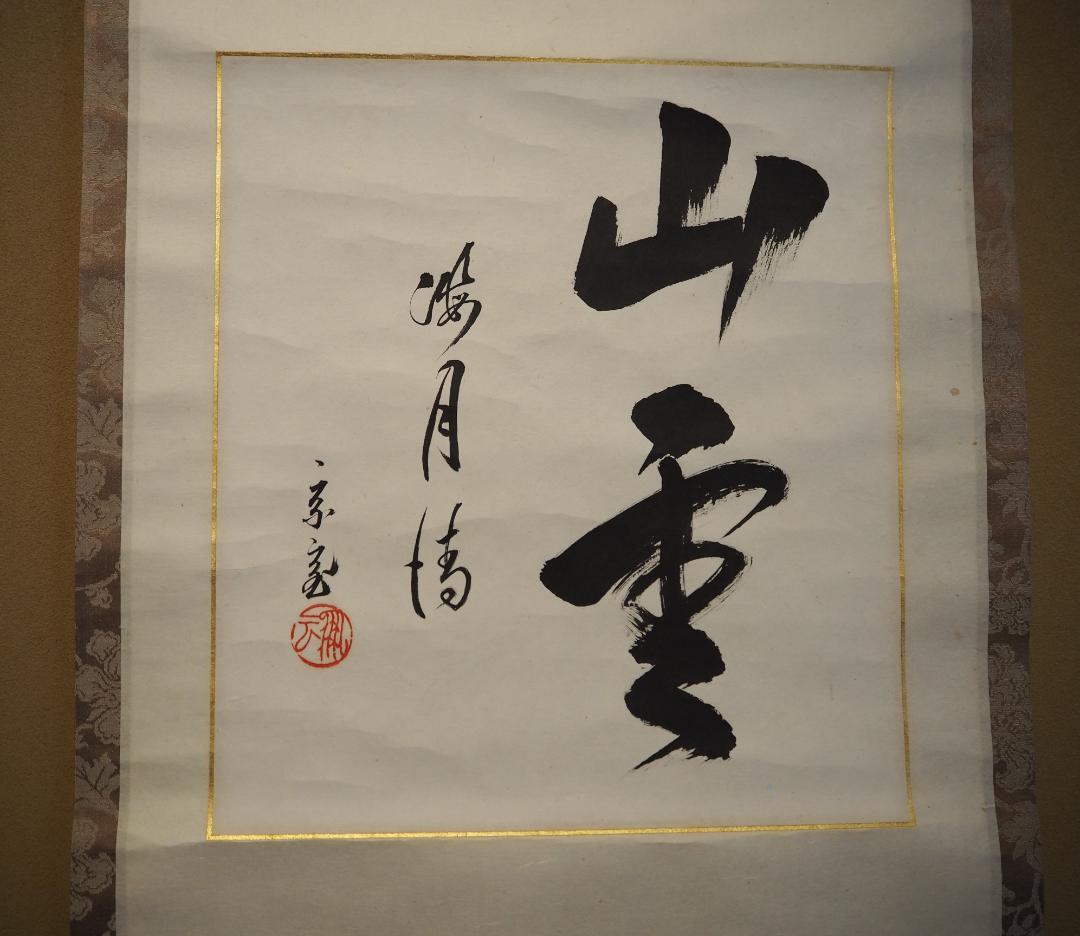 山雲
海月情